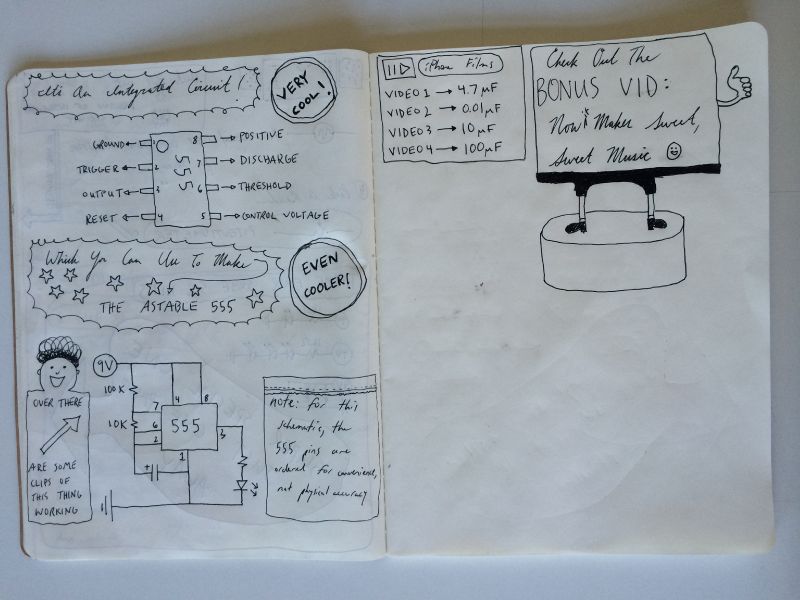 It's An Integrated Circuit!
VERY
COOL!
GROUND
1
8
POSITIVE
TRIGGER
2
7
DISCHARGE
OUTPUT
3
6
THRESHOLD
RESET
4
5
CONTROL VOLTAGE
555
Which You Can Use To Make
THE ASTABLE 555
EVEN
COOLER!
OVER THERE
ARE SOME
CLIPS OF
THIS THING
WORKING
9V
100K
10K
7
4
8
6
2
555
3
1
+
note: for this
schematic, the
555 pins are
ordered for convenience,
not physical accuracy
iPhone Films
VIDEO 1 → 4.7μF
VIDEO 2 → 0.01μF
VIDEO 3 → 10μF
VIDEO 4 → 100μF
Check Out The
BONUS VID:
Now Maker Sweet,
Sweet Music